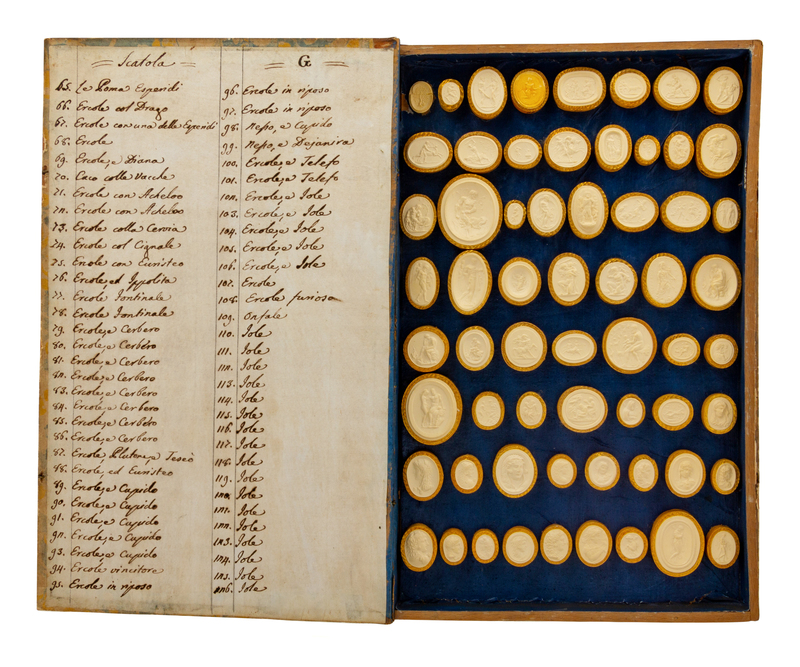 = Scatola =
65. Le Poma Esperidi
66. Ercole col Drago
67. Ercole con una delle Esperidi
68. Ercole
69. Ercole, e Diana
70. Caco colle Vacche
71. Ercole con Acheloo
72. Ercole con Acheloo
73. Ercole colla Cervia
74. Ercole col Cignale
75. Ercole con Euristeo
76. Ercole, ed Ippolita
77. Ercole Fontinale
78. Ercole Fontinale
79. Ercole, e Cerbero
80. Ercole, e Cerbero
81. Ercole, e Cerbero
82. Ercole, e Cerbero
83. Ercole, e Cerbero
84. Ercole, e Cerbero
85. Ercole, e Cerbero
86. Ercole, e Cerbero
87. Ercole, Plutone, e Teseo
88. Ercole, ed Euristeo
89. Ercole, e Cupido
90. Ercole, e Cupido
91. Ercole, e Cupido
92. Ercole, e Cupido
93. Ercole, e Cupido
94. Ercole vincitore
95. Ercole in riposo
= G =
96. Ercole in riposo
97. Ercole in riposo
98. Nesso, e Cupido
99. Nesso, e Dejanira
100. Ercole, e Telefo
101. Ercole, e Telefo
102. Ercole, e Iole
103. Ercole, e Iole
104. Ercole, e Iole
105. Ercole, e Iole
106. Ercole, e Iole
107. Ercole
108. Ercole furioso
109. Onfale
110. Iole
111. Iole
112. Iole
113. Iole
114. Iole
115. Iole
116. Iole
117. Iole
118. Iole
119. Iole
120. Iole
121. Iole
122. Iole
123. Iole
124. Iole
125. Iole
126. Iole